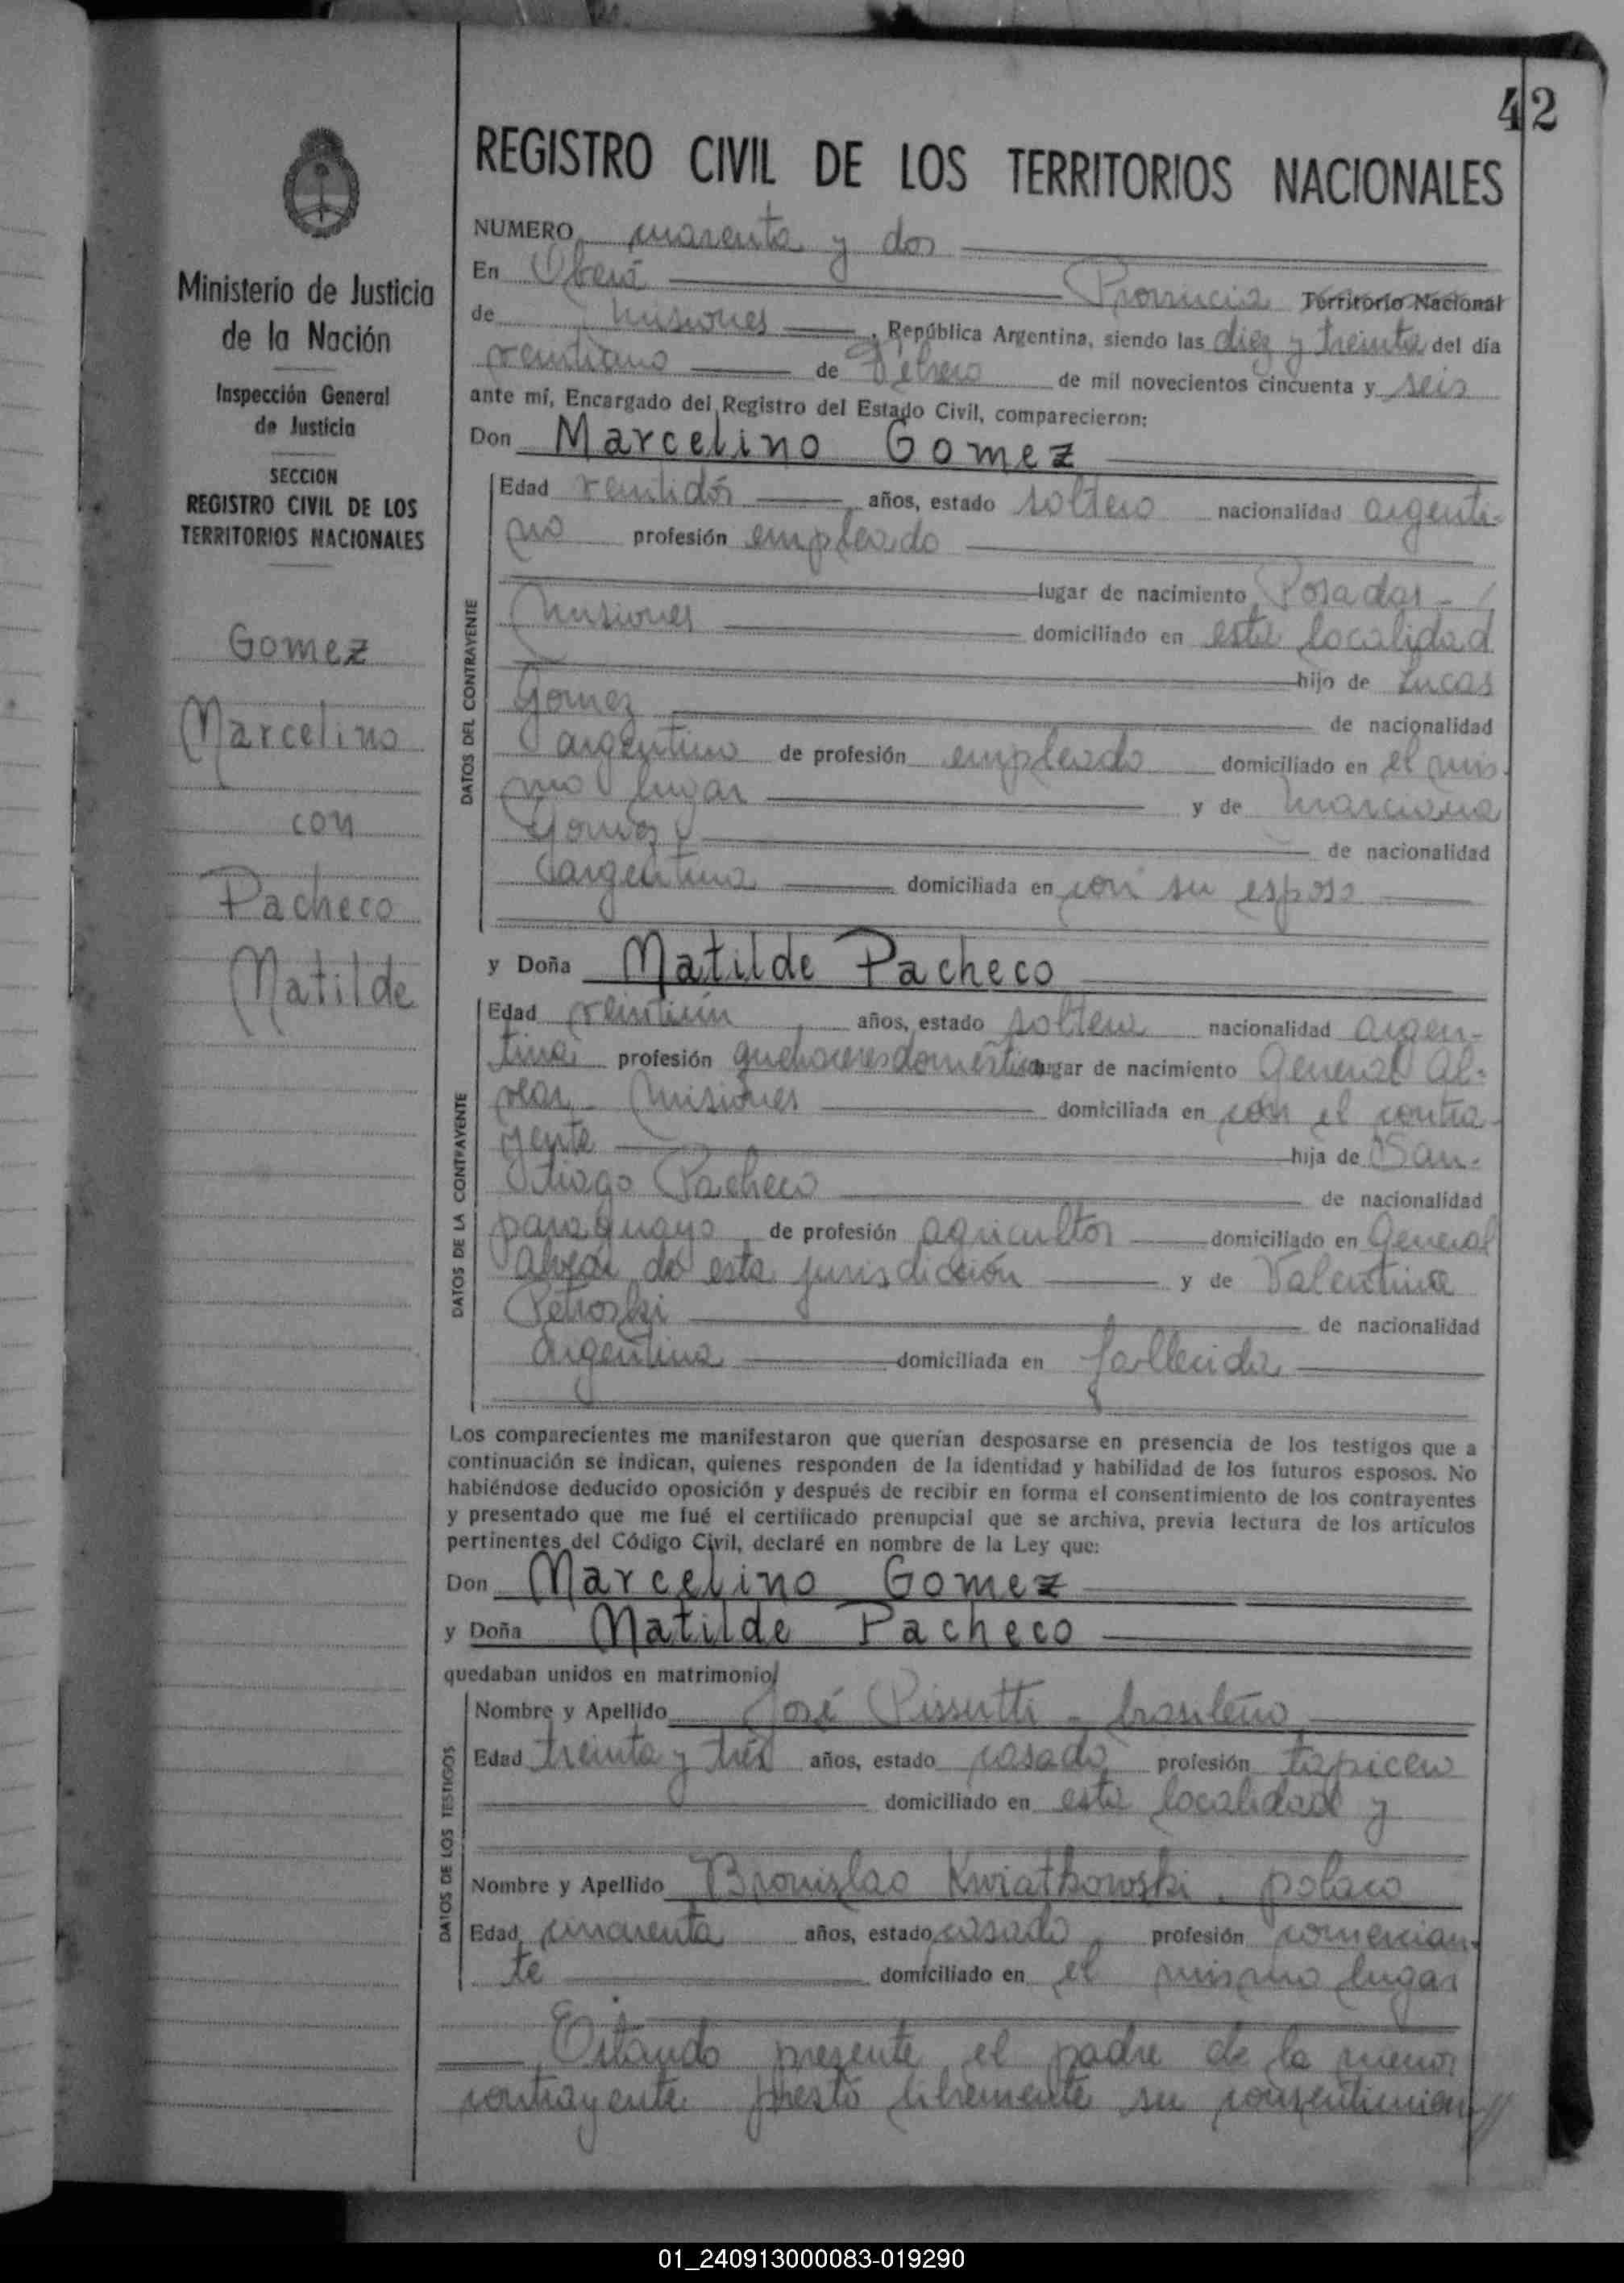 42
REGISTRO CIVIL DE LOS TERRITORIOS NACIONALES
Ministerio de Justicia
de la Nación
Inspección General
de Justicia
SECCION
REGISTRO CIVIL DE LOS
TERRITORIOS NACIONALES
Gomez
Marcelino
con
Pacheco
Matilde
NUMERO cuarenta y dos
En Oberá Provincia Territorio Nacional
de Misiones, República Argentina, siendo las diez y treinta del día
veintiuno de Febrero de mil novecientos cincuenta y seis
ante mí, Encargado del Registro del Estado Civil, comparecieron:
Don Marcelino Gomez
DATOS DEL CONTRAYENTE
Edad veintidós años, estado soltero nacionalidad argenti-
no profesión empleado
lugar de nacimiento Posadas -
Misiones domiciliado en esta localidad
hijo de Lucas
Gomez de nacionalidad
argentino de profesión empleado domiciliado en el mis-
mo lugar y de Marciana
Gomez de nacionalidad
argentina domiciliada en con su esposo
y Doña Matilde Pacheco
DATOS DE LA CONTRAYENTE
Edad veintiún años, estado soltera nacionalidad argen-
tina profesión quehaceres domésticos lugar de nacimiento General Al-
vear - Misiones domiciliada en con el contra-
yente hija de San-
tiago Pacheco de nacionalidad
paraguayo de profesión agricultor domiciliado en General
Alvear de esta jurisdicción y de Valentina
Petroski de nacionalidad
argentina domiciliada en fallecida
Los comparecientes me manifestaron que querían desposarse en presencia de los testigos que a
continuación se indican, quienes responden de la identidad y habilidad de los futuros esposos. No
habiéndose deducido oposición y después de recibir en forma el consentimiento de los contrayentes
y presentado que me fué el certificado prenupcial que se archiva, previa lectura de los artículos
pertinentes del Código Civil, declaré en nombre de la Ley que:
Don Marcelino Gomez
y Doña Matilde Pacheco
quedaban unidos en matrimonio
DATOS DE LOS TESTIGOS
Nombre y Apellido José Pissutti - brasileño
Edad treinta y tres años, estado casado profesión tapicero
domiciliado en esta localidad y
Nombre y Apellido Bronislao Kwiatkowski, polaco
Edad cincuenta años, estado casado, profesión comercian-
te domiciliado en el mismo lugar
Estando presente el padre de la menor
contrayente prestó libremente su consentimien
01_240913000083-019290